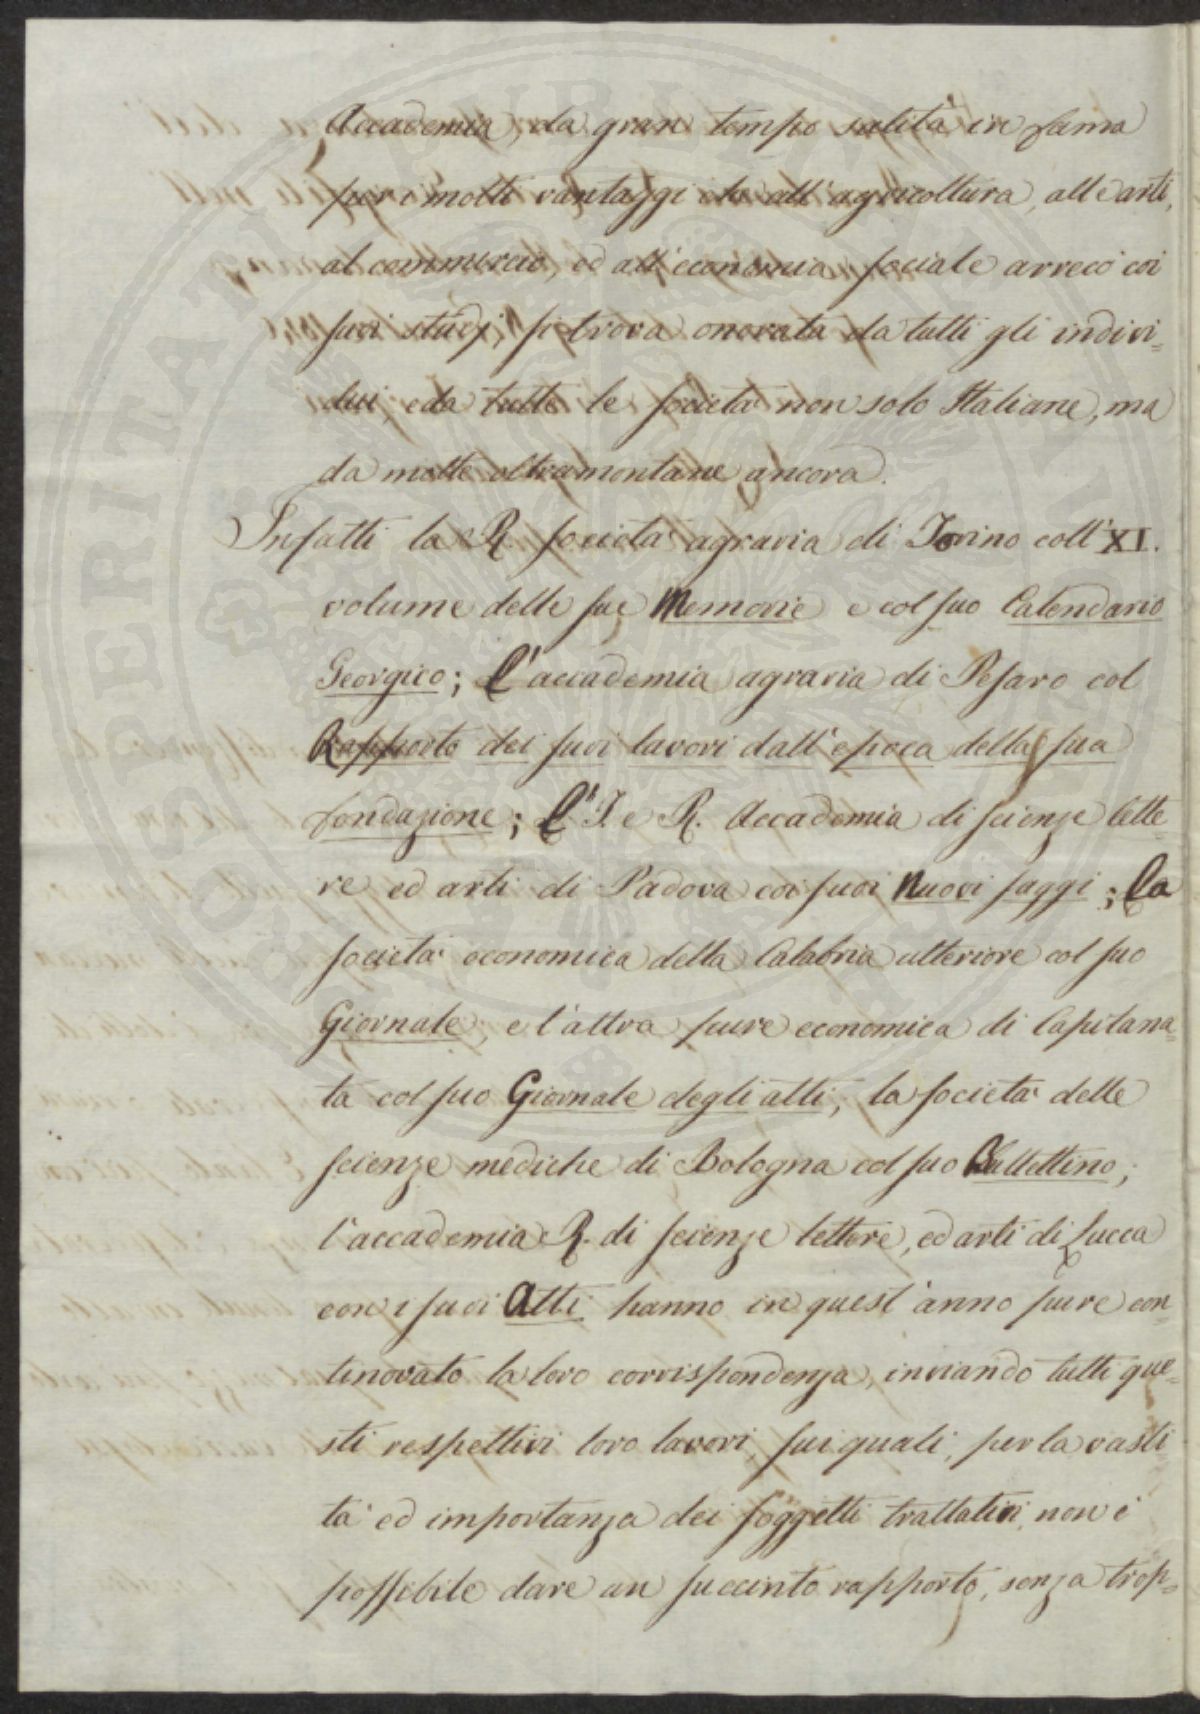 Accademia, da gran tempo salita in fama
per i molti vantaggi che all'agricoltura, alle arti,
al commercio, ed all'economia sociale arrecò coi
suoi studj, si trova onorata da tutti gli indivi=
dui, e da tutte le società non solo Italiane, ma
da molte oltramontane ancora.
Infatti la R. società agraria di Torino coll'XI.
volume delle sue Memorie e col suo Calendario
Georgico; L'accademia agraria di Pesaro col
Rapporto dei suoi lavori dall'epoca della sua
fondazione; L'I. e R. Accademia di scienze lette=
re ed arti di Padova coi suoi Nuovi saggi; La
società economica della Calabria ulteriore col suo
Giornale, e l'altra pure economica di Capitana=
ta col suo Giornale degli atti, la società delle
scienze mediche di Bologna col suo Bullettino;
l'accademia R. di scienze lettere, ed arti di Lucca
con i suoi Atti hanno in quest'anno pure con=
tinovato la loro corrispondenza, inviando tutti que=
sti respettivi loro lavori, sui quali, per la vasti
tà ed importanza dei soggetti trattativi, non è
possibile dare un succinto rapporto, senza trop=
PROSPERITATI PUBLICAE